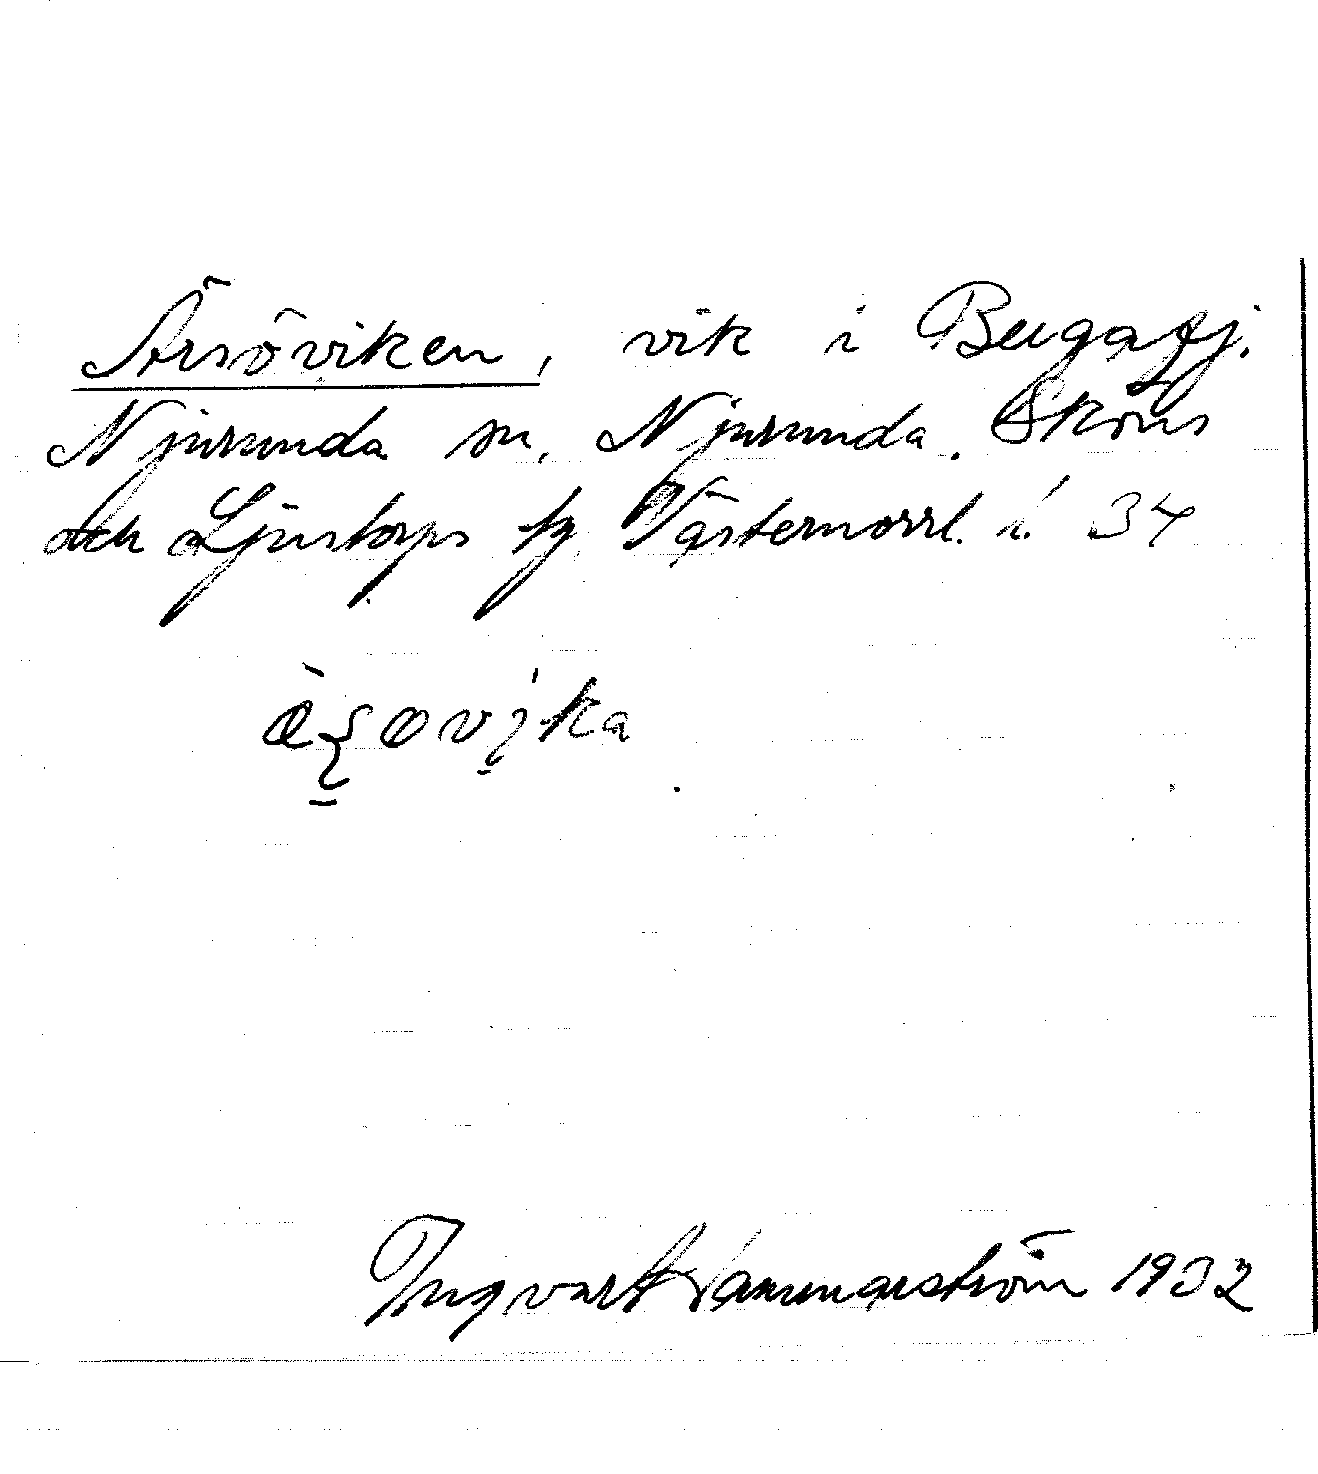 Ärsöviken, vik i Bergafj.
Njurunda sn, Njurunda, Sköns
och Ljustorps tg Västernorrl. l. 34
Ingvart Hammarström 1932